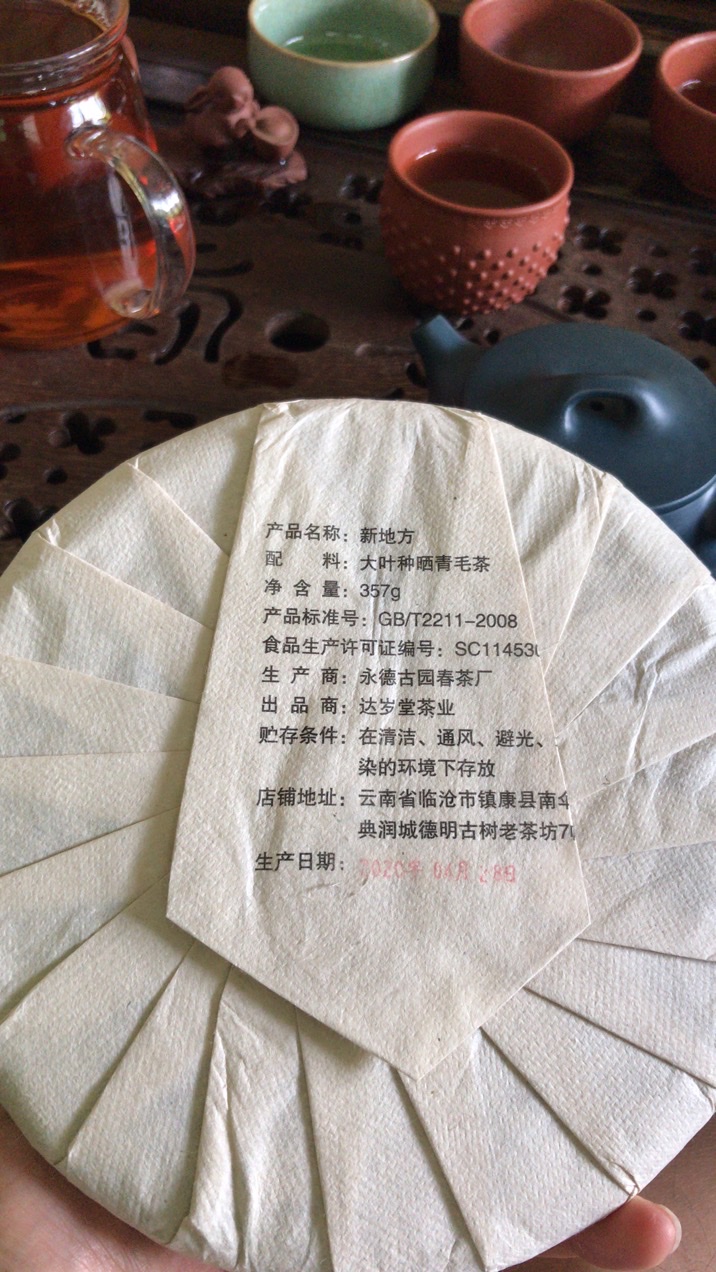 产品名称：新地方
配 料：大叶种晒青毛茶
净 含 量：357g
产品标准号：GB/T2211-2008
食品生产许可证编号：SC114530
生 产 商：永德古园春茶厂
出 品 商：达岁堂茶业
贮存条件：在清洁、通风、避光、
染的环境下存放
店铺地址：云南省临沧市镇康县南伞
典润城德明古树老茶坊7
生产日期：2020年 04月 28日